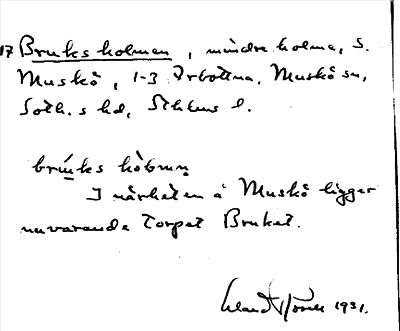 17 Bruksholmen, mindre holme, S.
Muskö, 1-3 Arbottna, Muskö sn,
Soth.s hd, Sthlms l.
brúks hòlmen
I närheten å Muskö ligger
nuvarande torpet Bruket.
1931.